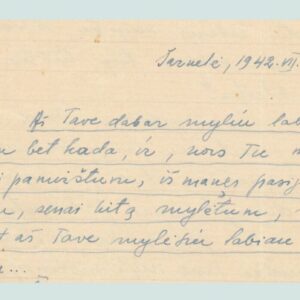 Tarnelė, 1942.VII.
Aš Tave dabar myliu lab
bet kada, ir, nors Tu
pamirštum, iš manęs pasi
senai kitą mylėtum,
aš Tave mylėsiu labiau
...